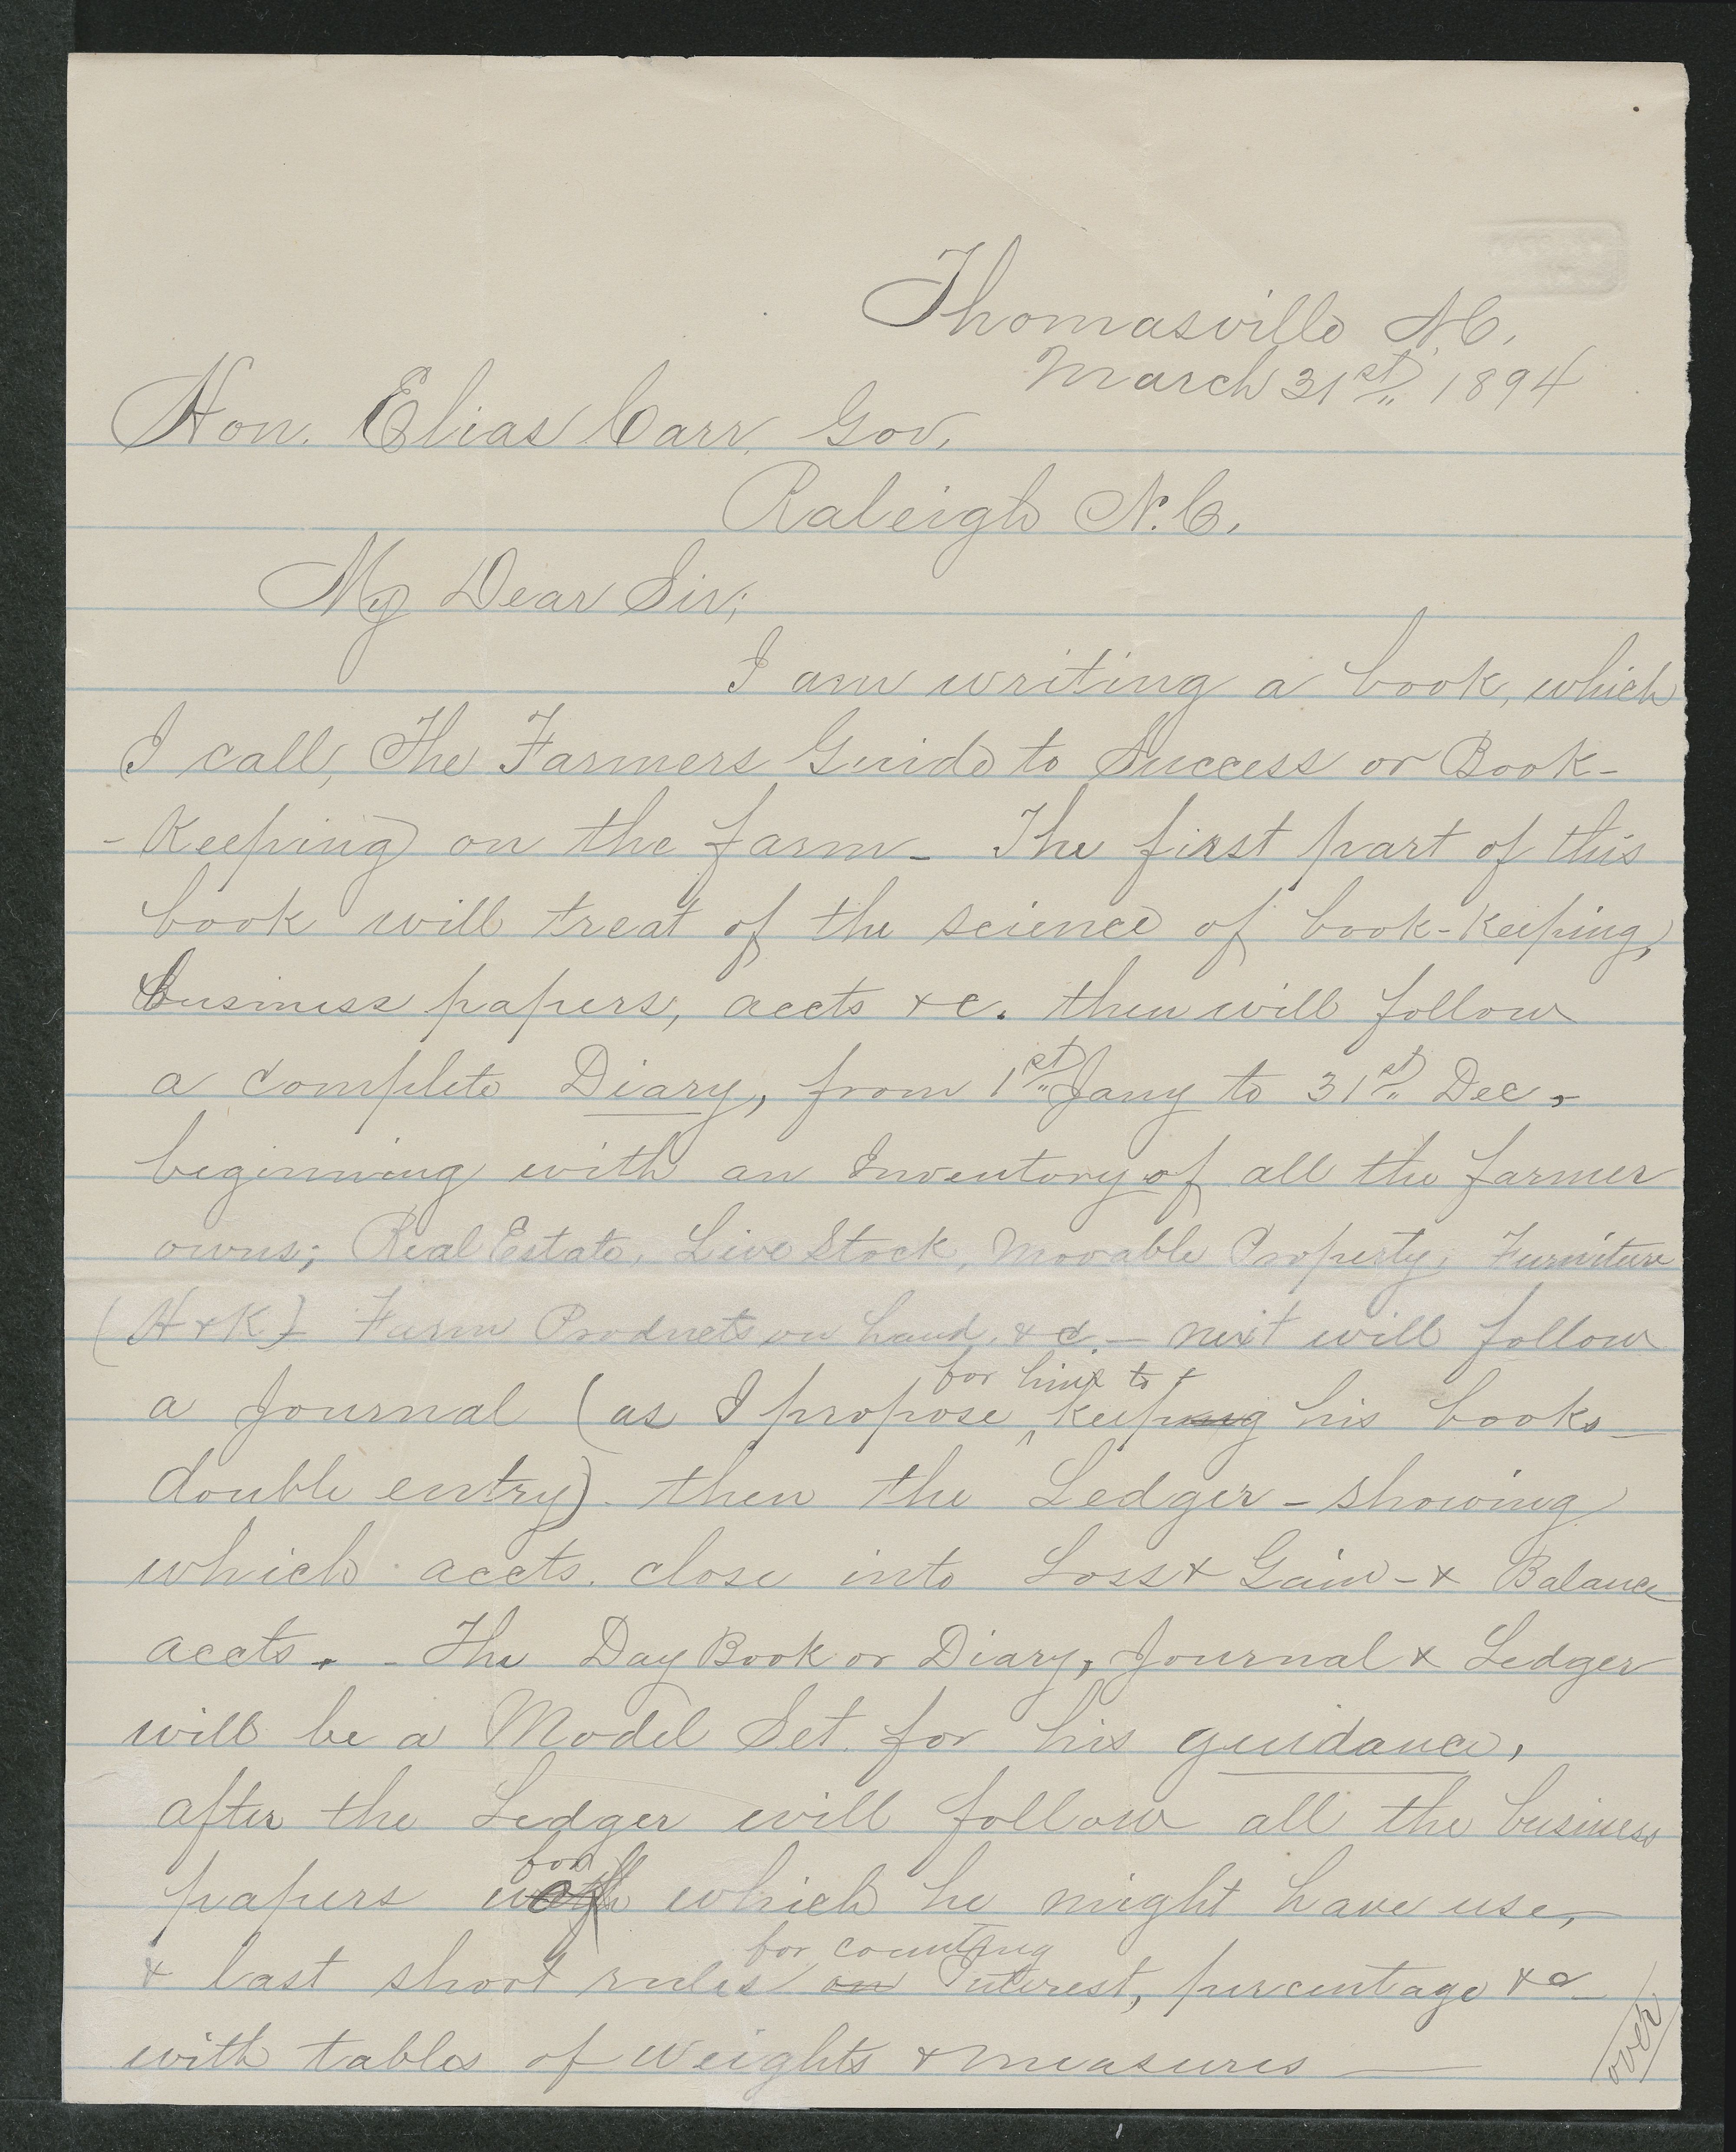 Thomasville N.C.
March 31st 1894
Hon. Elias Carr, Gov.
Raleigh N.C.
My Dear Sir;
I am writing a book, which
I call, The Farmers Guide to Success or Book-
-Keeping on the farm - The first part of this
book will treat of the science of book-keeping,
business papers, accts &c. then will follow
a complete Diary, from 1st Jany to 31st Dec,
beginning with an Inventory of all the farmer
owns; Real Estate, Live Stock, Movable Property, Furniture
(H & K) Farm Products on hand, &c. - next will follow
for him to
a Journal (as I propose ^ keeping his books
double entry) then the Ledger - showing
which accts. close into Loss & Gain - & Balance
accts. - The Day Book or Diary, Journal & Ledger
will be a Model Set for his guidance,
after the Ledger will follow all the business
for
papers which he might have use,
for counting
& last short rules on Interest, percentage &c
with tables of weights & measures
over